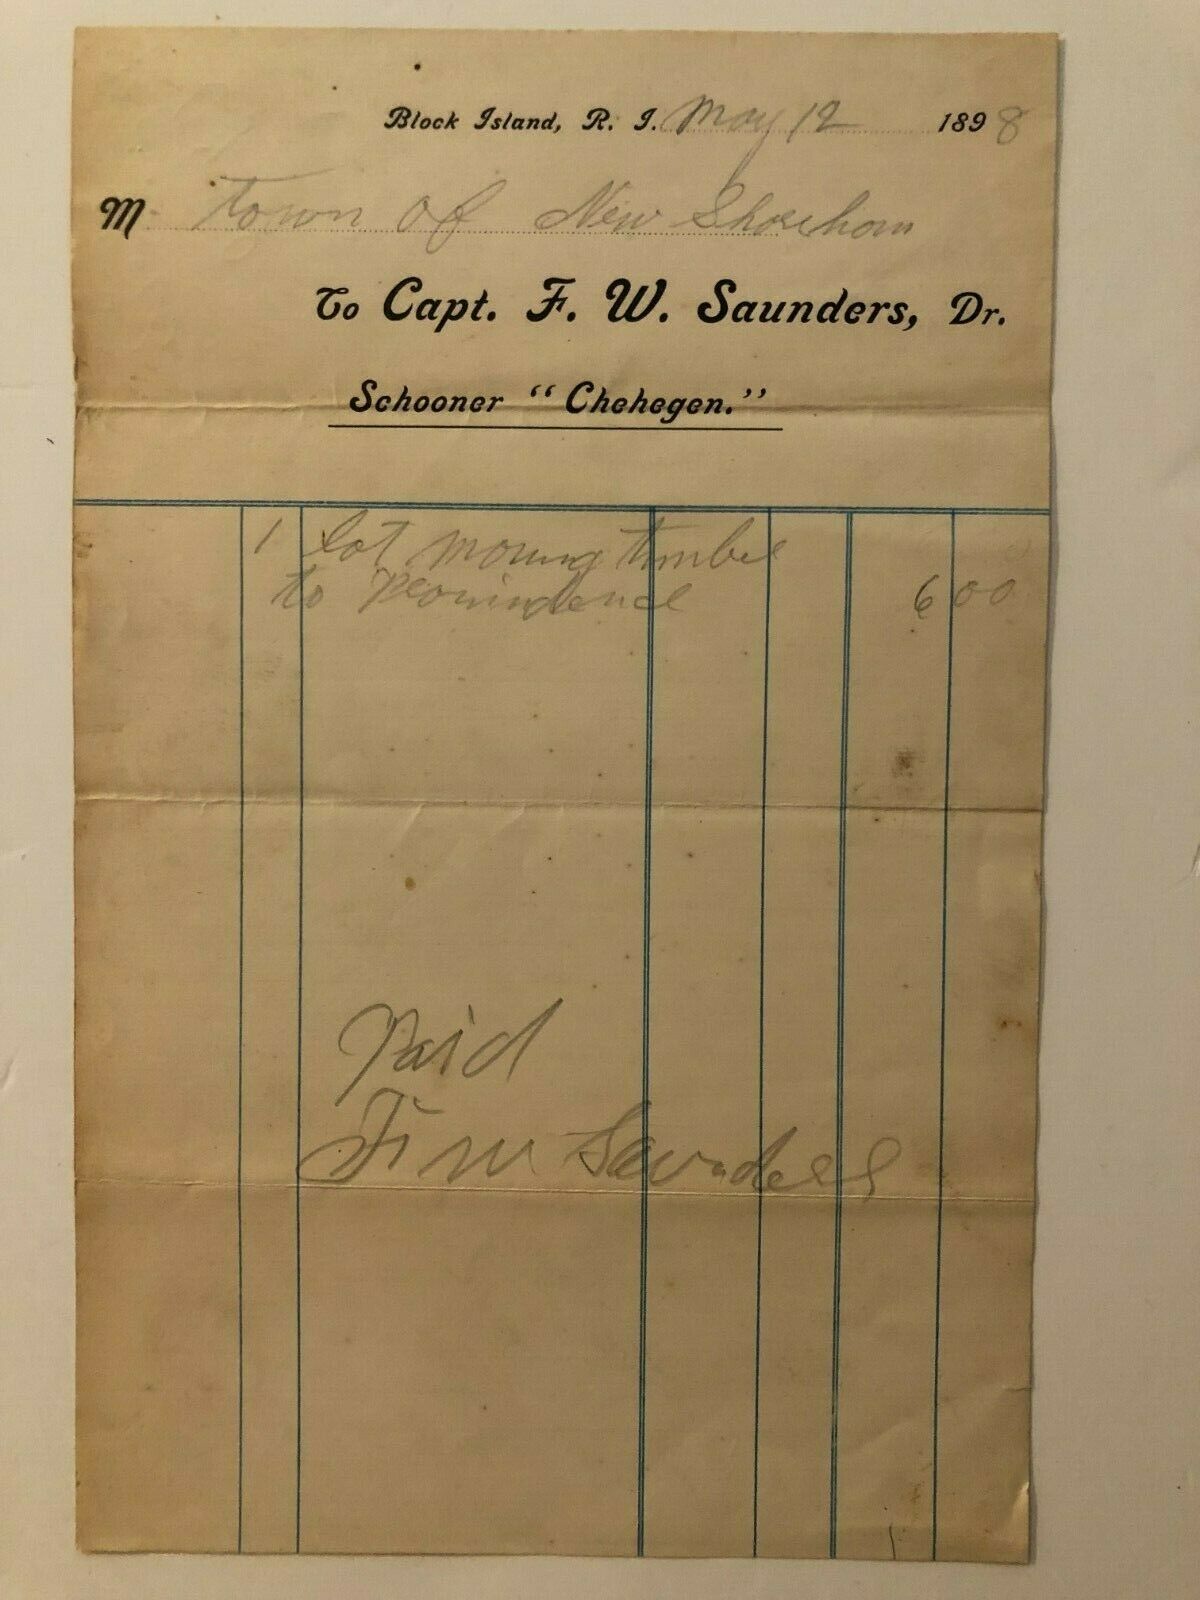 Block Island, R. I. May 12 1898
M Town of New Shoreham
To Capt. F. W. Saunders, Dr.
Schooner "Chehegen."
1 lot moving timber
to Providence 6 00
Paid
F W Saunders